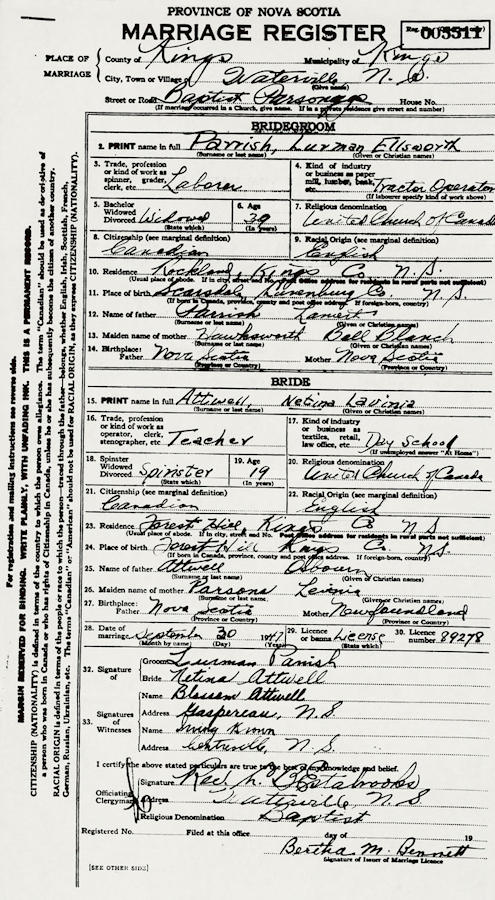 PROVINCE OF NOVA SCOTIA
MARRIAGE REGISTER
005511
PLACE OF MARRIAGE
County of Kings Municipality of Kings
City, Town or Village of Waterville N. S.
(Give name)
Street or Road Baptist Parsonage House No.
(If marriage occurred in a Church, give name. If in a private residence give street and number)
BRIDEGROOM
2. PRINT name in full Parrish, Lurman Ellsworth
(Surname or last name) (Given or Christian names)
3. Trade, profession or kind of work as spinner, grader, clerk, etc. Laborer
4. Kind of industry or business as paper mill, lumber, bank, etc. Tractor Operator
(If labourer specify kind of work above)
5. Bachelor Widowed Divorced Widowed
(State which)
6. Age 39
(In years)
7. Religious denomination United Church of Canada
8. Citizenship (see marginal definition) Canadian
9. Racial Origin (see marginal definition) English
10. Residence Rockland, Kings Co. N. S.
(Usual place of abode. If in city, street and No. Post Office address for residents in rural parts not sufficient)
11. Place of birth Lunenburg Co. N. S.
(If born in Canada, province, county and post office address. If foreign-born, country)
12. Name of father Parrish
(Surname or last name) (Given or Christian names)
13. Maiden name of mother Hawksworth Bell Blanch
(Surname or last name) (Given or Christian names)
14. Birthplace: Father Nova Scotia Mother Nova Scotia
(Province or Country) (Province or Country)
BRIDE
15. PRINT name in full Attwell, Netina Lavinia
(Surname or last name) (Given or Christian names)
16. Trade, profession or kind of work as operator, clerk, stenographer, etc Teacher
17. Kind of industry or business as textiles, retail, law office, etc. Day School
(If unemployed answer "At Home")
18. Spinster Widowed Divorced Spinster
(State which)
19. Age 19
(In years)
20. Religious denomination United Church of Canada
21. Citizenship (see marginal definition) Canadian
22. Racial Origin (see marginal definition) English
23. Residence Forest Hill, Kings Co N S
(Usual place of abode. If in city, street and No. Post Office address for residents in rural parts not sufficient)
24. Place of birth Forest Hill Kings Co. N.S.
(If born in Canada, province, county and post office address. If foreign-born, country)
25. Name of father Attwell Osbourn
(Surname or last name) (Given or Christian names)
26. Maiden name of mother Parsons
(Surname or last name) (Given or Christian names)
27. Birthplace: Father Nova Scotia Mother Newfoundland
(Province or Country) (Province or Country)
28. Date of marriage September 30 1947
(Month by name) (Day) (Year)
29. Licence or banns License
(State which)
30. Licence number 89278
32. Signature of
Groom Lurman Parrish
Bride Netina Attwell
33. Signatures of Witnesses
Name Blossom Attwell
Address Gaspereau, N.S.
Name Brown
Address Centreville, N. S.
I certify the above stated particulars are true to the best of my knowledge and belief.
Officiating Clergyman
Signature Rev. Estabrooks
Address Waterville, N. S
Religious Denomination Baptist
Registered No. Filed at this office day of 19
Bertha M. Bennett
Signature of Issuer of Marriage Licence
[SEE OTHER SIDE]
For registrations and mailing instructions see reverse side.
MARGIN RESERVED FOR BINDING. WRITE PLAINLY, WITH UNFADING INK. THIS IS A PERMANENT RECORD.
CITIZENSHIP (NATIONALITY) is defined in terms of the country to which the person owes allegiance. The term "Canadian" should be used as descriptive of
a person who was born in Canada or who has rights of Citizenship in Canada, unless he or she has subsequently become the citizen of another country.
RACIAL ORIGIN is defined in terms of the people or race to which the person—traced through the father—belongs, whether English, Irish, Scottish, French,
German, Russian, Ukrainian, etc. The terms "Canadian" or "American" should not be used for RACIAL ORIGIN, as they express CITIZENSHIP (NATIONALITY).